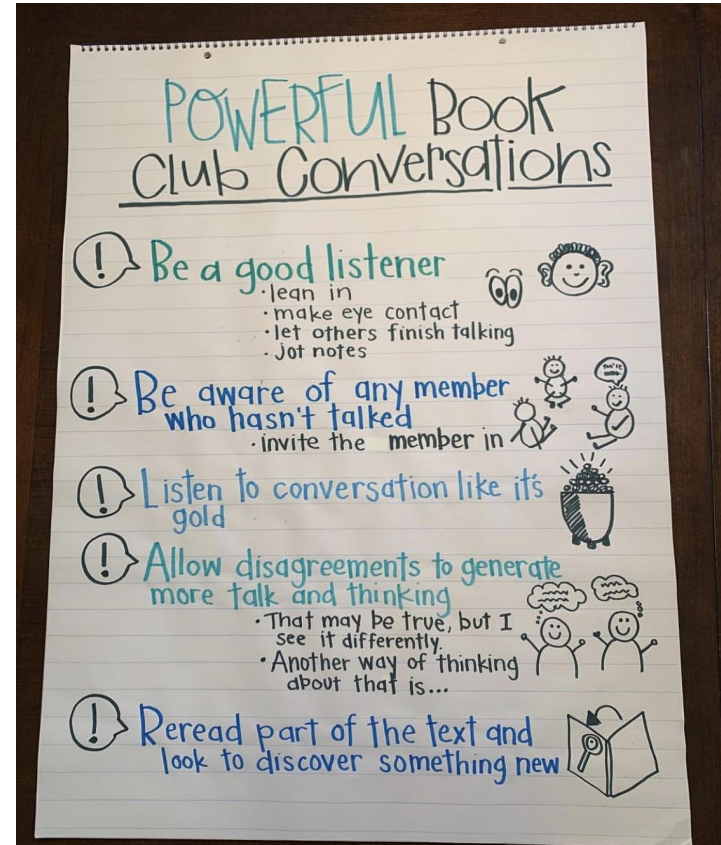 POWERFUL Book
Club Conversations
! Be a good listener
· lean in
· make eye contact
· let others finish talking
· jot notes
! Be aware of any member
who hasn't talked
· invite the member in
You're
! Listen to conversation like it's
gold
! Allow disagreements to generate
more talk and thinking
· That may be true, but I
see it differently.
· Another way of thinking
about that is...
! Reread part of the text and
look to discover something new